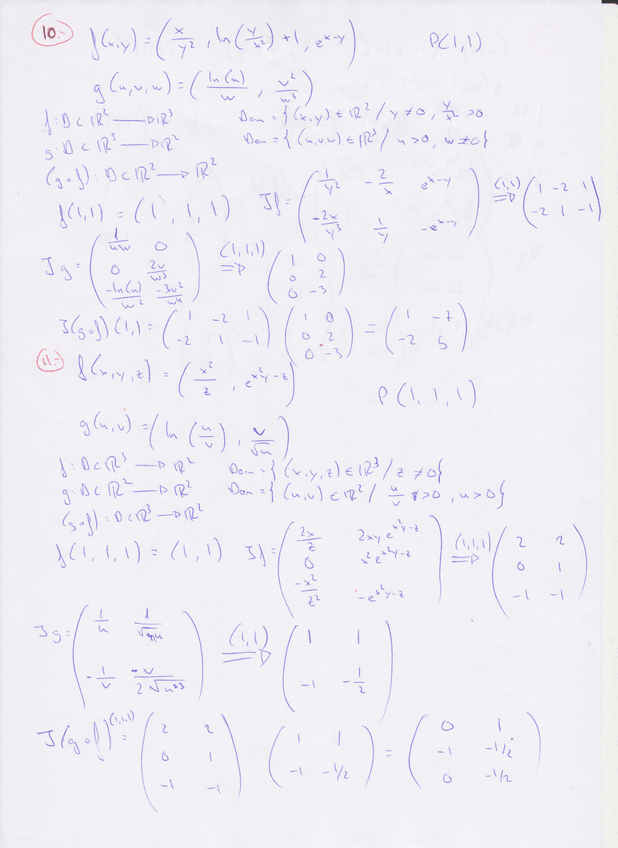 10.- f(x,y) = (x/y², ln(y/x²)+1, e^(x-y)) P(1,1)
g(u,v,w) = (ln(u)/w, v²/w³)
f: D⊂ℝ² → ℝ³ Dom = {(x,y)∈ℝ² / y≠0, y/x²>0
g: D⊂ℝ³ → ℝ² Dom = {(u,v,w)∈ℝ³ / u>0, w≠0}
(g∘f): D⊂ℝ² → ℝ²
f(1,1) = (1, 1, 1) Jf = (1/y² -2/x e^(x-y) ; -2x/y³ 1/y -e^(x-y)) (1,1) ⇒ (1 -2 1 ; -2 1 -1)
Jg = (1/uw 0 ; 0 2v/w³ ; -ln(u)/w² -3v²/w⁴) (1,1,1) ⇒ (1 0 ; 0 2 ; 0 -3)
J(g∘f)(1,1) = (1 -2 1 ; -2 1 -1) (1 0 ; 0 2 ; 0 -3) = (1 -7 ; -2 5)
11.- f(x,y,z) = (x²/z, e^(x²y-z)) P(1,1,1)
g(u,v) = (ln(u/v), v/√u)
f: D⊂ℝ³ → ℝ² Dom = {(x,y,z)∈ℝ³ / z≠0}
g: D⊂ℝ² → ℝ² Dom = {(u,v)∈ℝ² / u/v >0, u>0}
(g∘f): D⊂ℝ³ → ℝ²
f(1,1,1) = (1,1) Jf = (2x/z 2xy e^(x²y-z) ; 0 x² e^(x²y-z) ; -x²/z² -e^(x²y-z)) (1,1,1) ⇒ (2 2 ; 0 1 ; -1 -1)
Jg = (1/u 1/√u ; -1/v -v/2√u³) (1,1) ⇒ (1 1 ; -1 -1/2)
J(g∘f)(1,1,1) = (2 2 ; 0 1 ; -1 -1) (1 1 ; -1 -1/2) = (0 1 ; -1 -1/2 ; 0 -1/2)